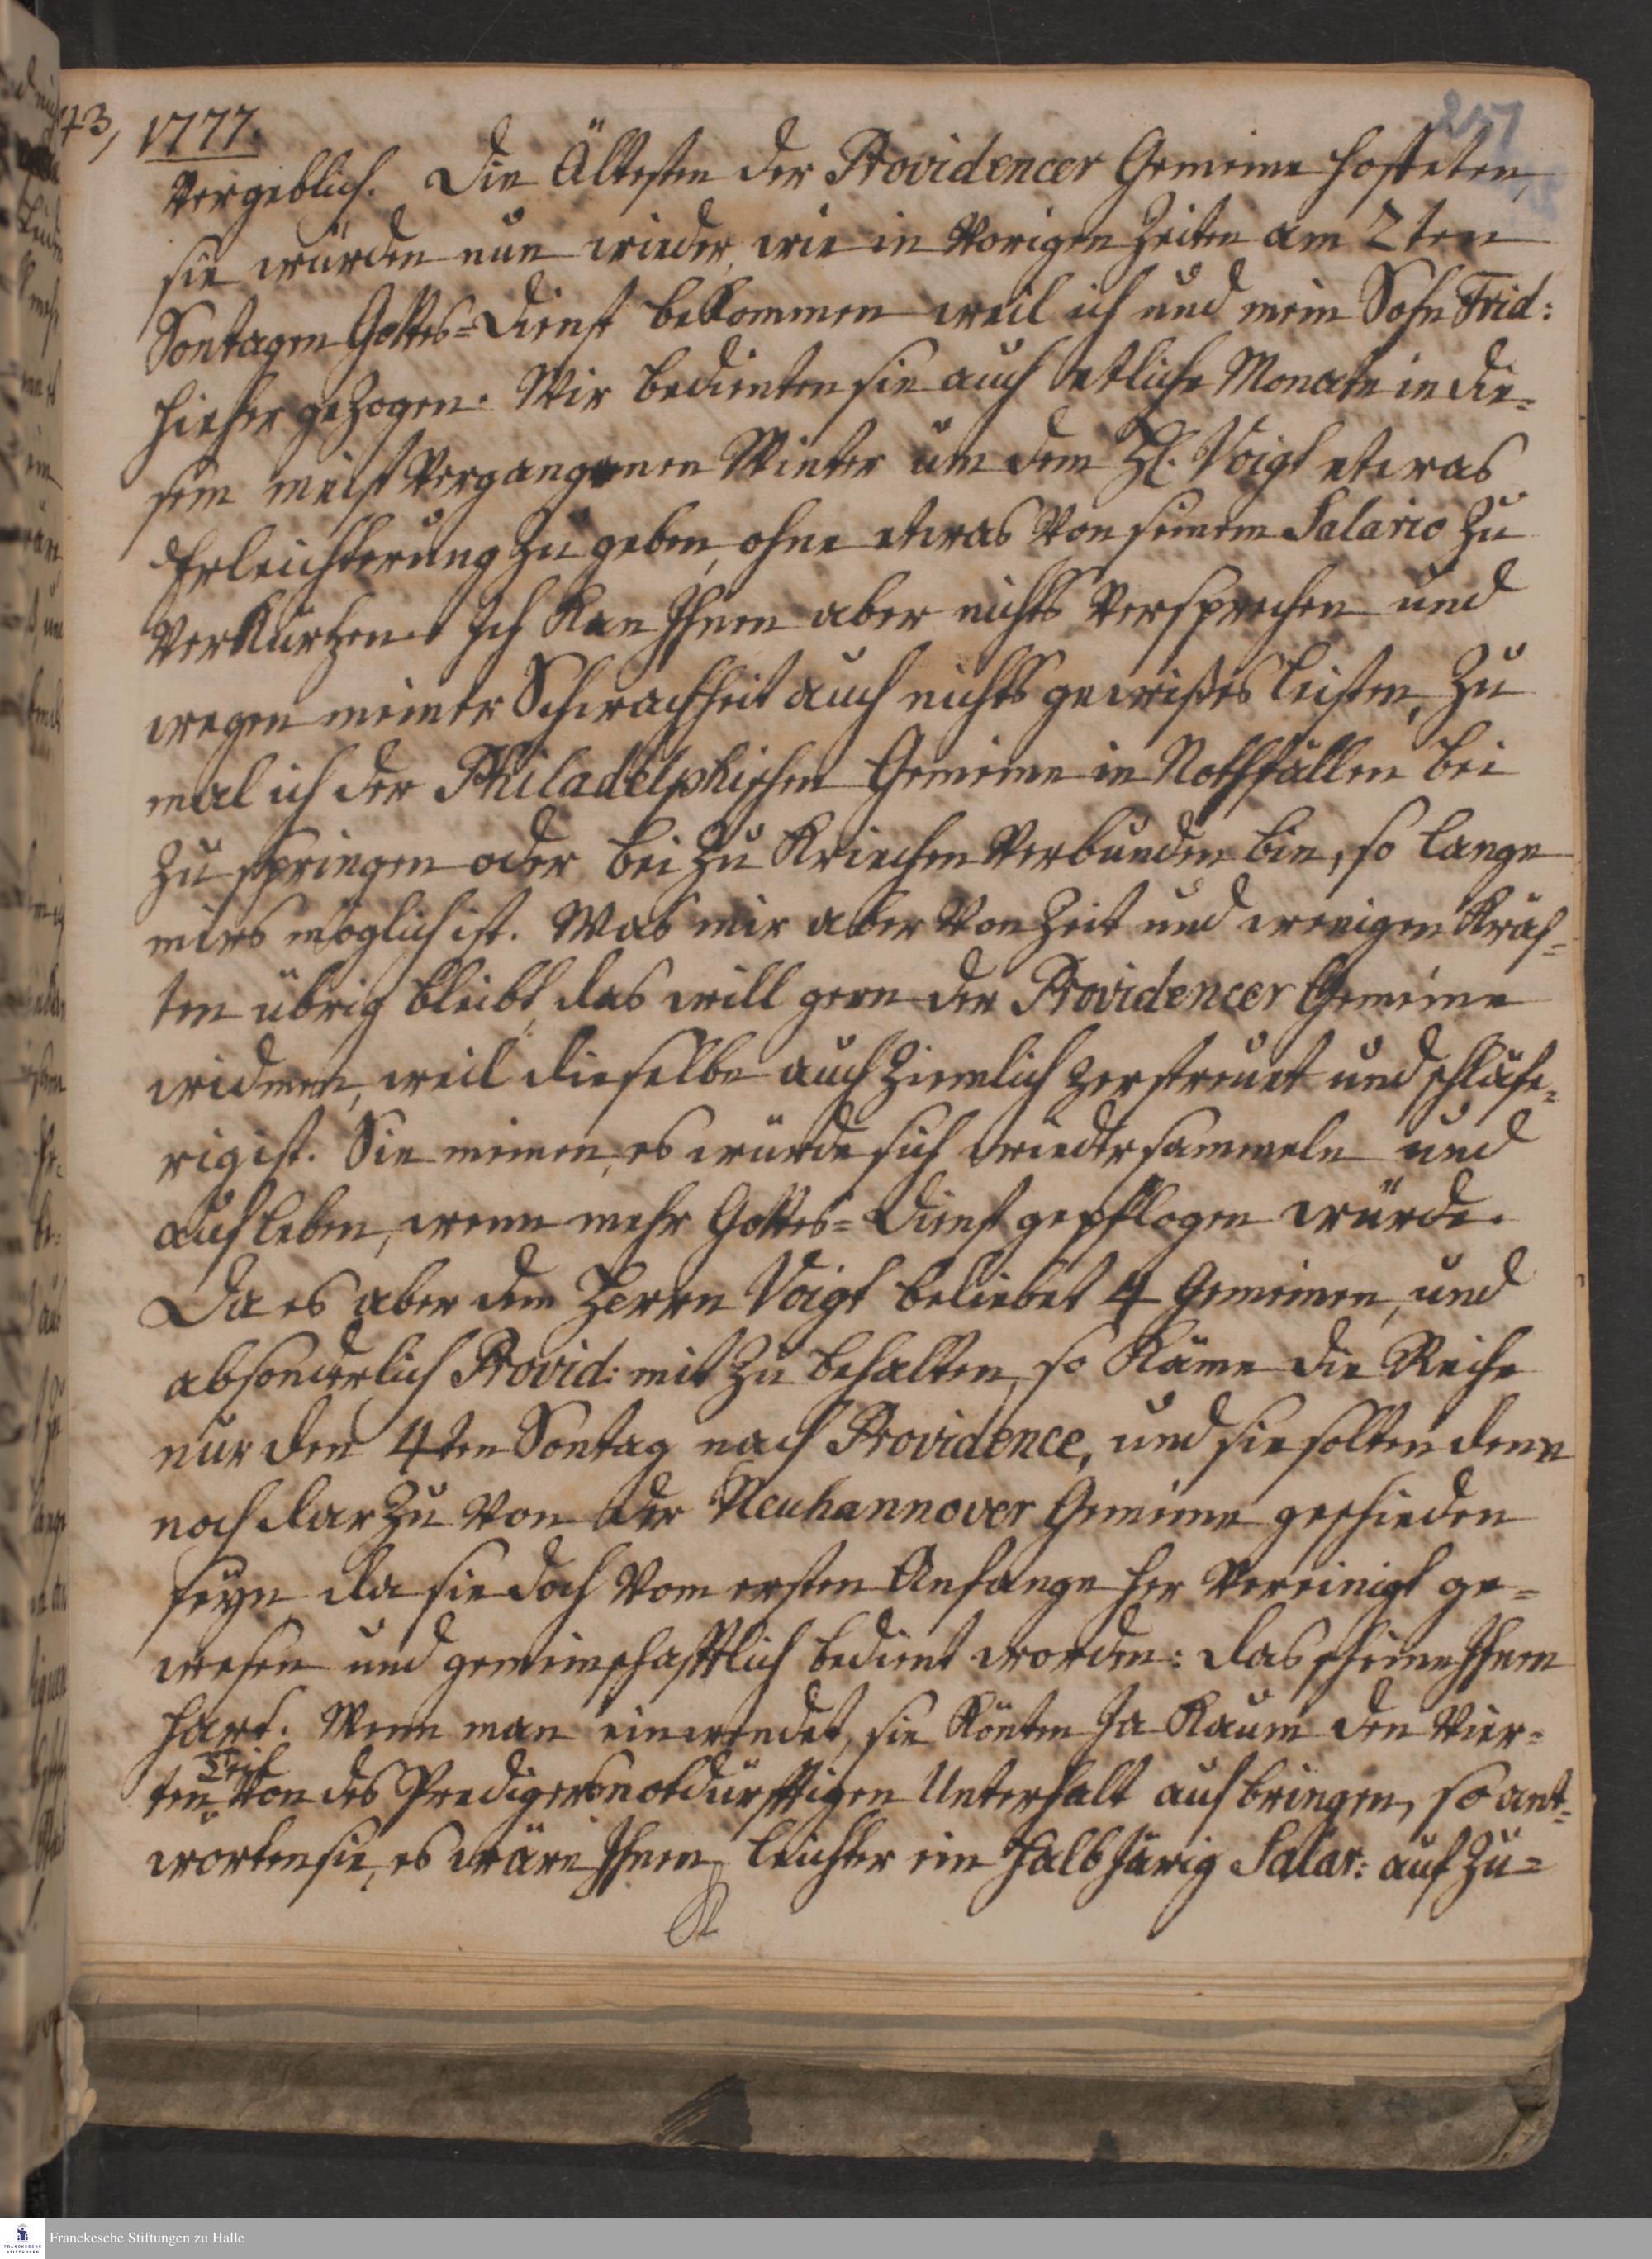 43, 1777.
257
vergeblich. Die Ältesten der Providencer Gemeine hofften,
sie würden nun wieder, wie in vorigen Zeiten am 2ten
Sontagen Gottes=Dienst bekommen weil ich und mein Sohn Frid:
hieher gezogen. Wir bedienten sie auch etliche Monate in die=
sem meist vergangenen Winter um dem H. Voigt etwas
Erleichterung zu geben, ohne etwas von seinem Salario zu
verkürtzen. Ich kan Ihnen aber nichts versprechen und
wegen meiner Schwachheit auch nichts gewißes leisten, zu
mal ich der Philadelphischen Gemeine in Nothfällen bei
zu springen oder bei zu kriechen verbunden bin, so lange
mirs möglich ist. Was mir aber von Zeit und wenigen Kräf=
ten übrig bleibt, das will gern der Providencer Gemeine
widmen, weil dieselbe auch ziemlich zerstreuet und schläfe=
rig ist. Sie meinen, es würde sich wieder sammeln und
aufleben, wenn mehr Gottes=Dienst gepflogen würde.
Da es aber dem Herrn Voigt beliebet 4 Gemeinen, und
absonderlich Provid: mit zu behalten, so käme die Reihe
nur den 4ten Sontag nach Providence, und sie solten denn
noch darzu von der Neuhannover Gemeine geschieden
seyn da sie doch vom ersten Anfange her vereinigt ge=
wesen und gemeinschafftlich bedient worden: das scheine Ihnen
hart. Wenn man einwendet, sie könten ja kaum den vier=
Teil
ten von des Predigers notdürfftigen Unterhalt aufbringen, so ant=
worten sie, es wäre Ihnen leichter ein halbjärig Salar: auf zu=
Franckesche Stiftungen zu Halle